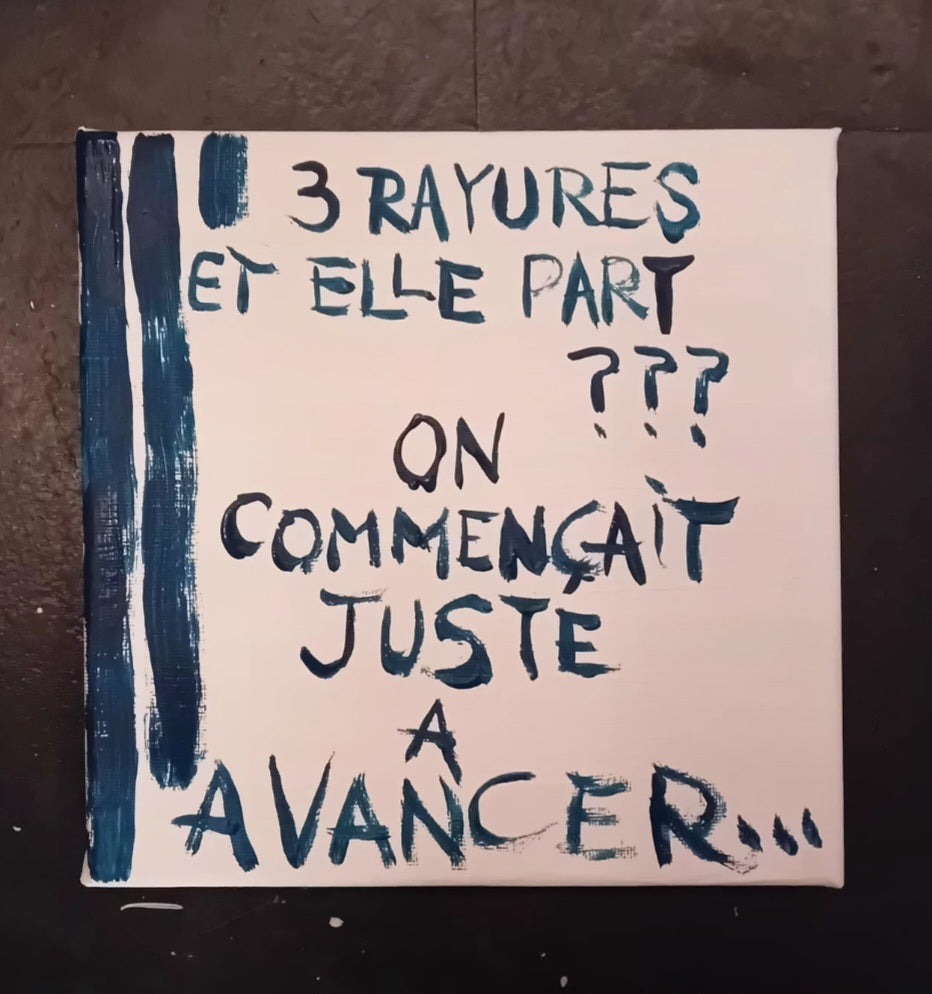 3 RAYURES
ET ELLE PART
???
ON
COMMENÇAIT
JUSTE
A
AVANCER...